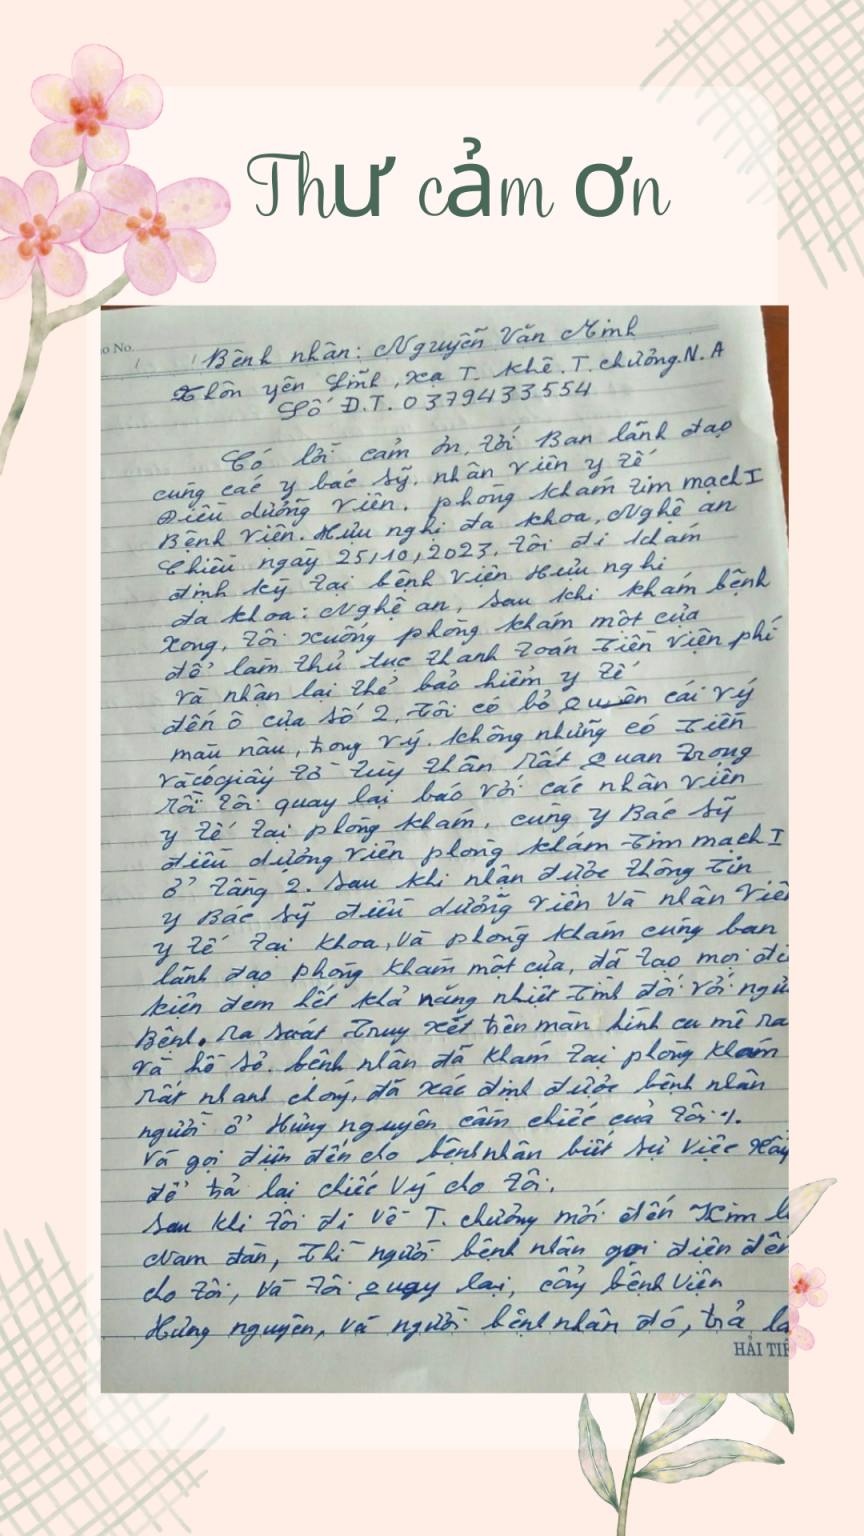 Thư cảm ơn
o No.
Bệnh nhân: Nguyễn Văn Minh
Thôn yên Lĩnh, xa T. Khê. T. chưởng. N. A
Số Đ.T. 0379433554
Có lời cảm ơn, tới Ban lãnh đạo
cùng các y bác sỹ. nhân viên y tế
Điều dưỡng viên. phòng khám tim mạch I
Bệnh viện. Hữu nghị đa khoa, Nghệ an
Chiều ngày 25/10/2023. tôi đi khám
định kỳ tại bệnh viện Hữu nghị
đa khoa: Nghệ an, sau khi khám bệnh
xong, tôi xuống phòng khám một cửa
để làm thủ tục thanh toán tiền viện phí
và nhận lại thẻ bảo hiểm y tế
đến ô cửa số 2, tôi có bỏ quên cái ví
màu nâu, trong ví. không những có tiền
và có giấy tờ tùy thân rất quan trọng
rồi tôi quay lại báo với các nhân viên
y tế tại phòng khám, cùng y Bác sỹ
điều dưỡng viên phòng khám tim mạch I
ở tầng 2. sau khi nhận được thông tin
y Bác sỹ điều dưỡng viên và nhân viên
y tế tại khoa, và phòng khám cùng ban
lãnh đạo phòng khám một cửa, đã tạo mọi
kiện đem hết khả năng nhiệt tình đối với
Bệnh. Ra soát truy xét trên màn hình ca mê ra
và hồ sơ. bệnh nhân đã khám tại phòng khám
rất nhanh chóng, đã xác định được bệnh nhân
người ở Hưng nguyên cầm chiếc của tôi ./.
và gọi điện đến cho bệnh nhân biết sự việc xảy
để trả lại chiếc ví cho tôi.
sau khi tôi đi về T. chưởng mới đến Kim
Nam đàn, thì người bệnh nhân gọi điện đến
cho tôi, và tôi quay lại, cổng bệnh viện
Hưng nguyên, và người bệnh nhân đó, trả lạ
HẢI TIẾ